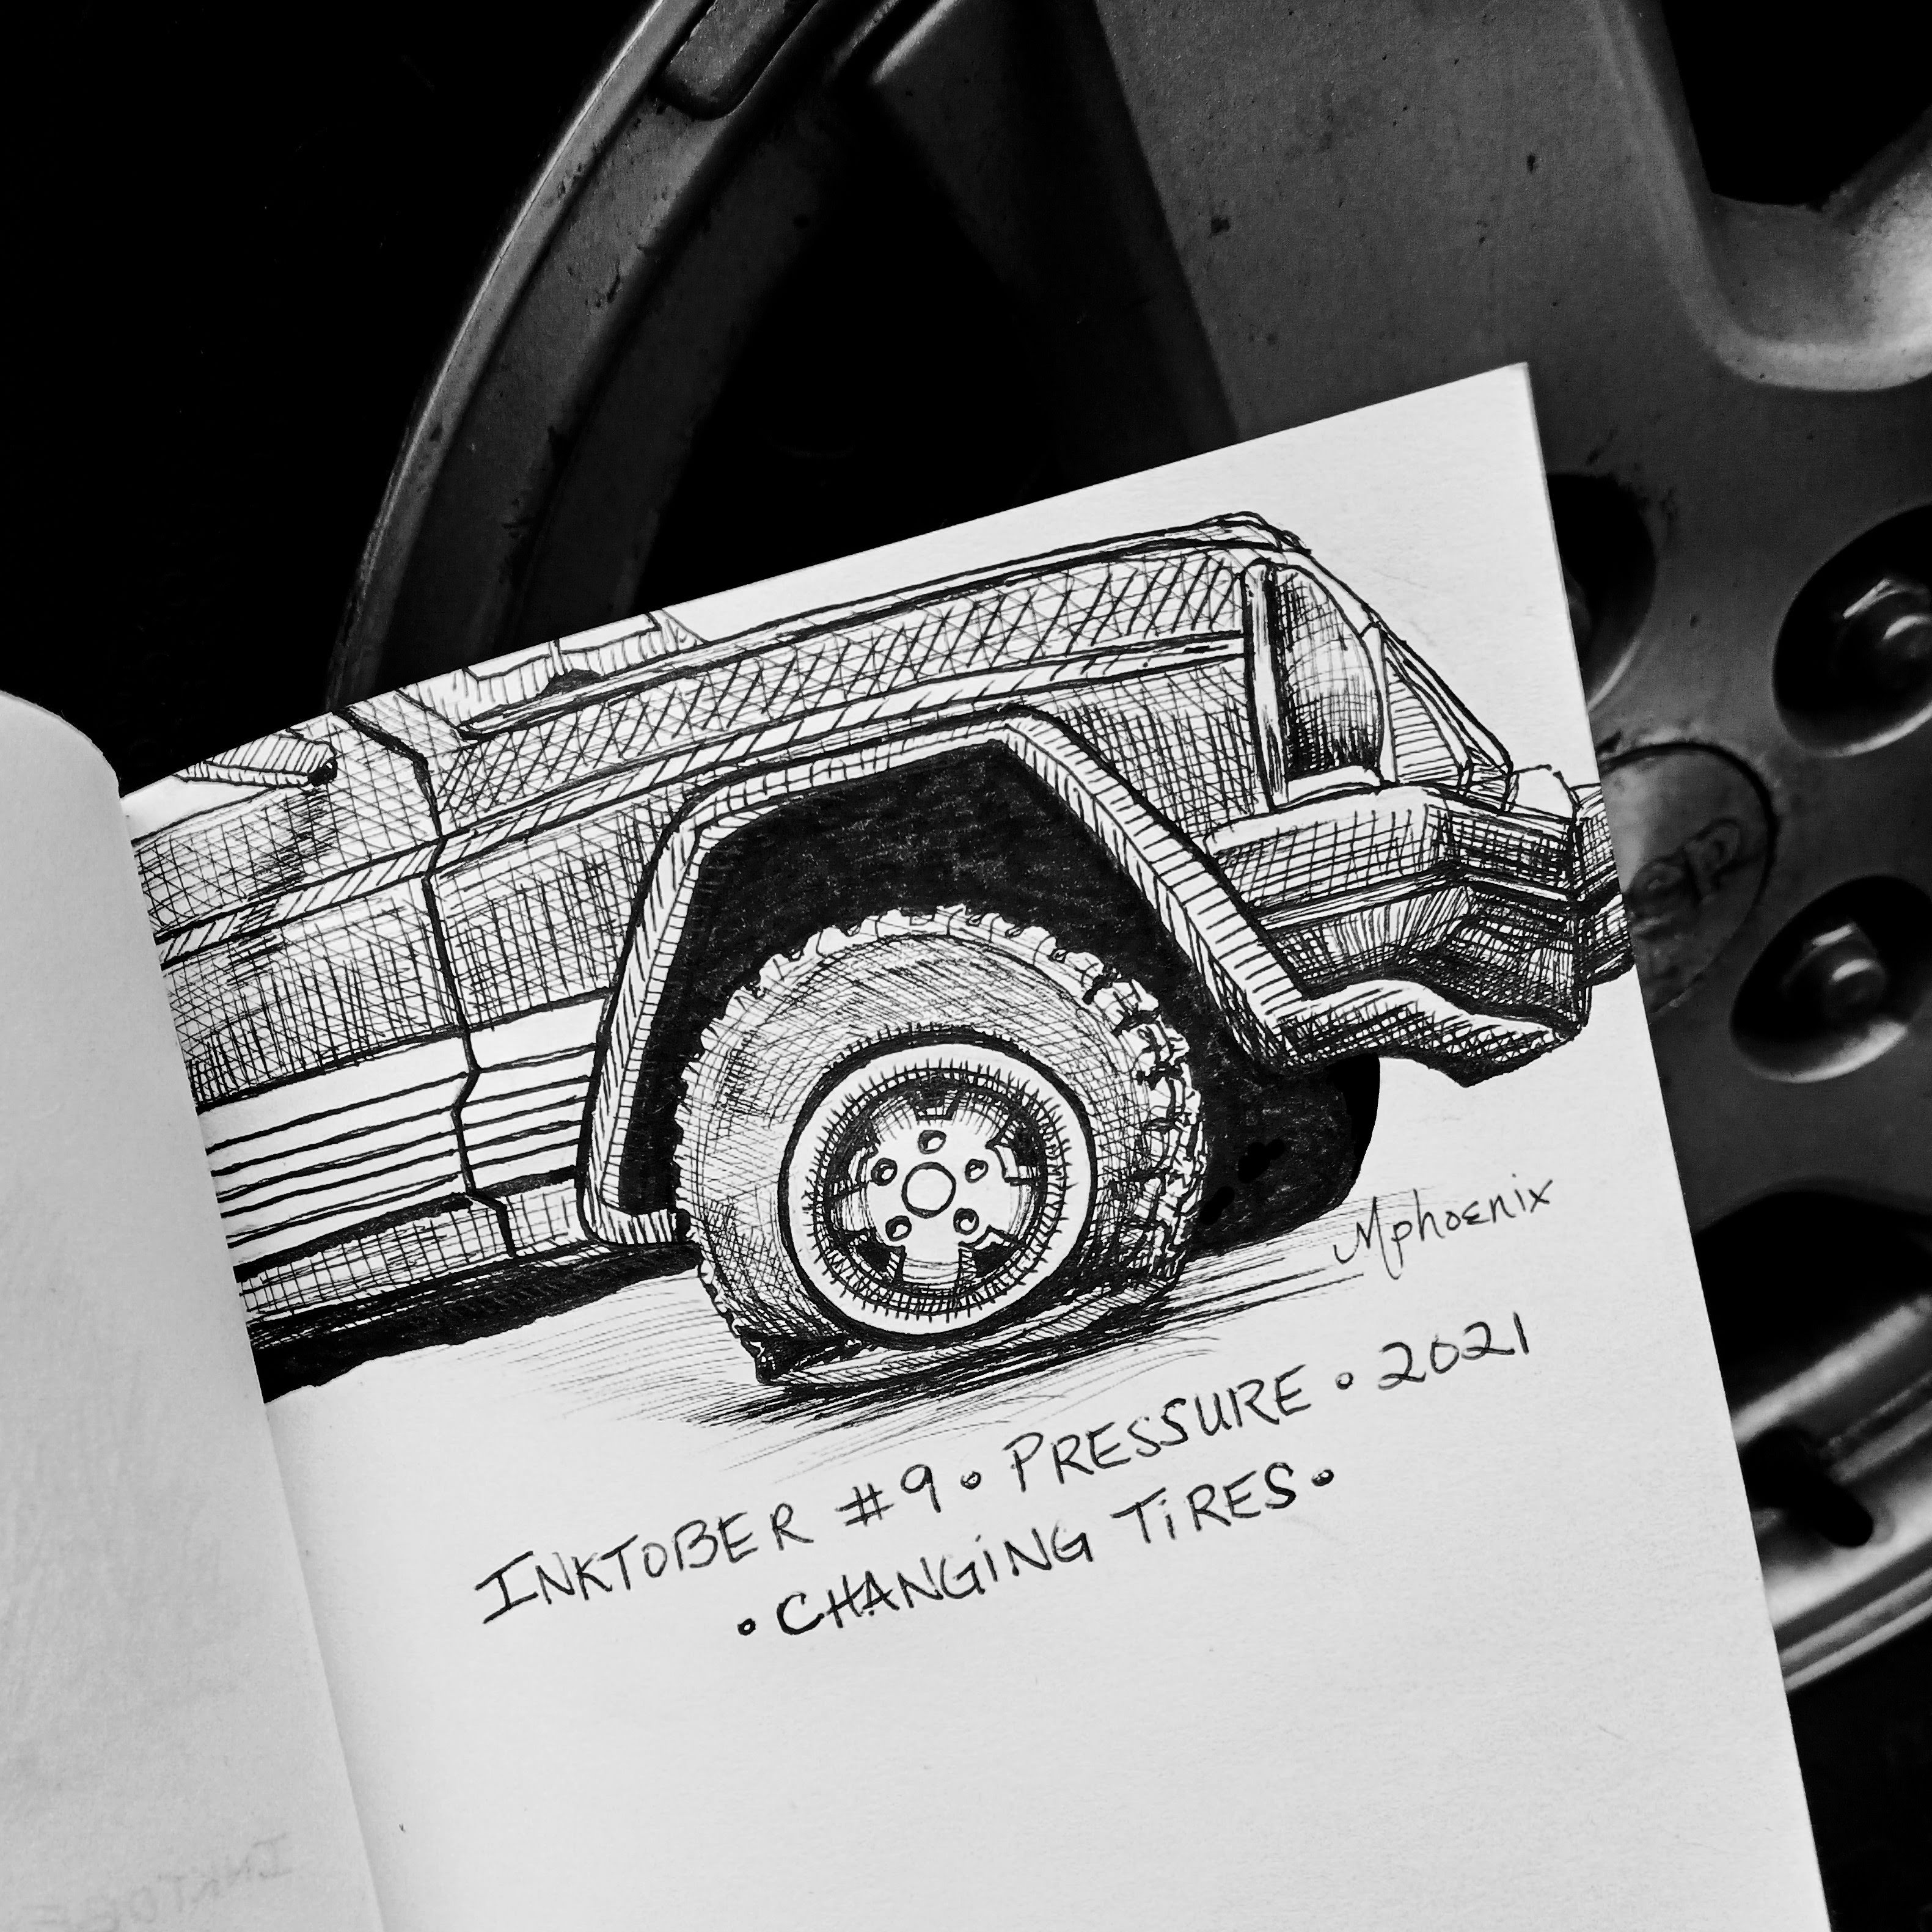 Mphoenix
INKTOBER #9 • PRESSURE • 2021
• CHANGING TIRES •